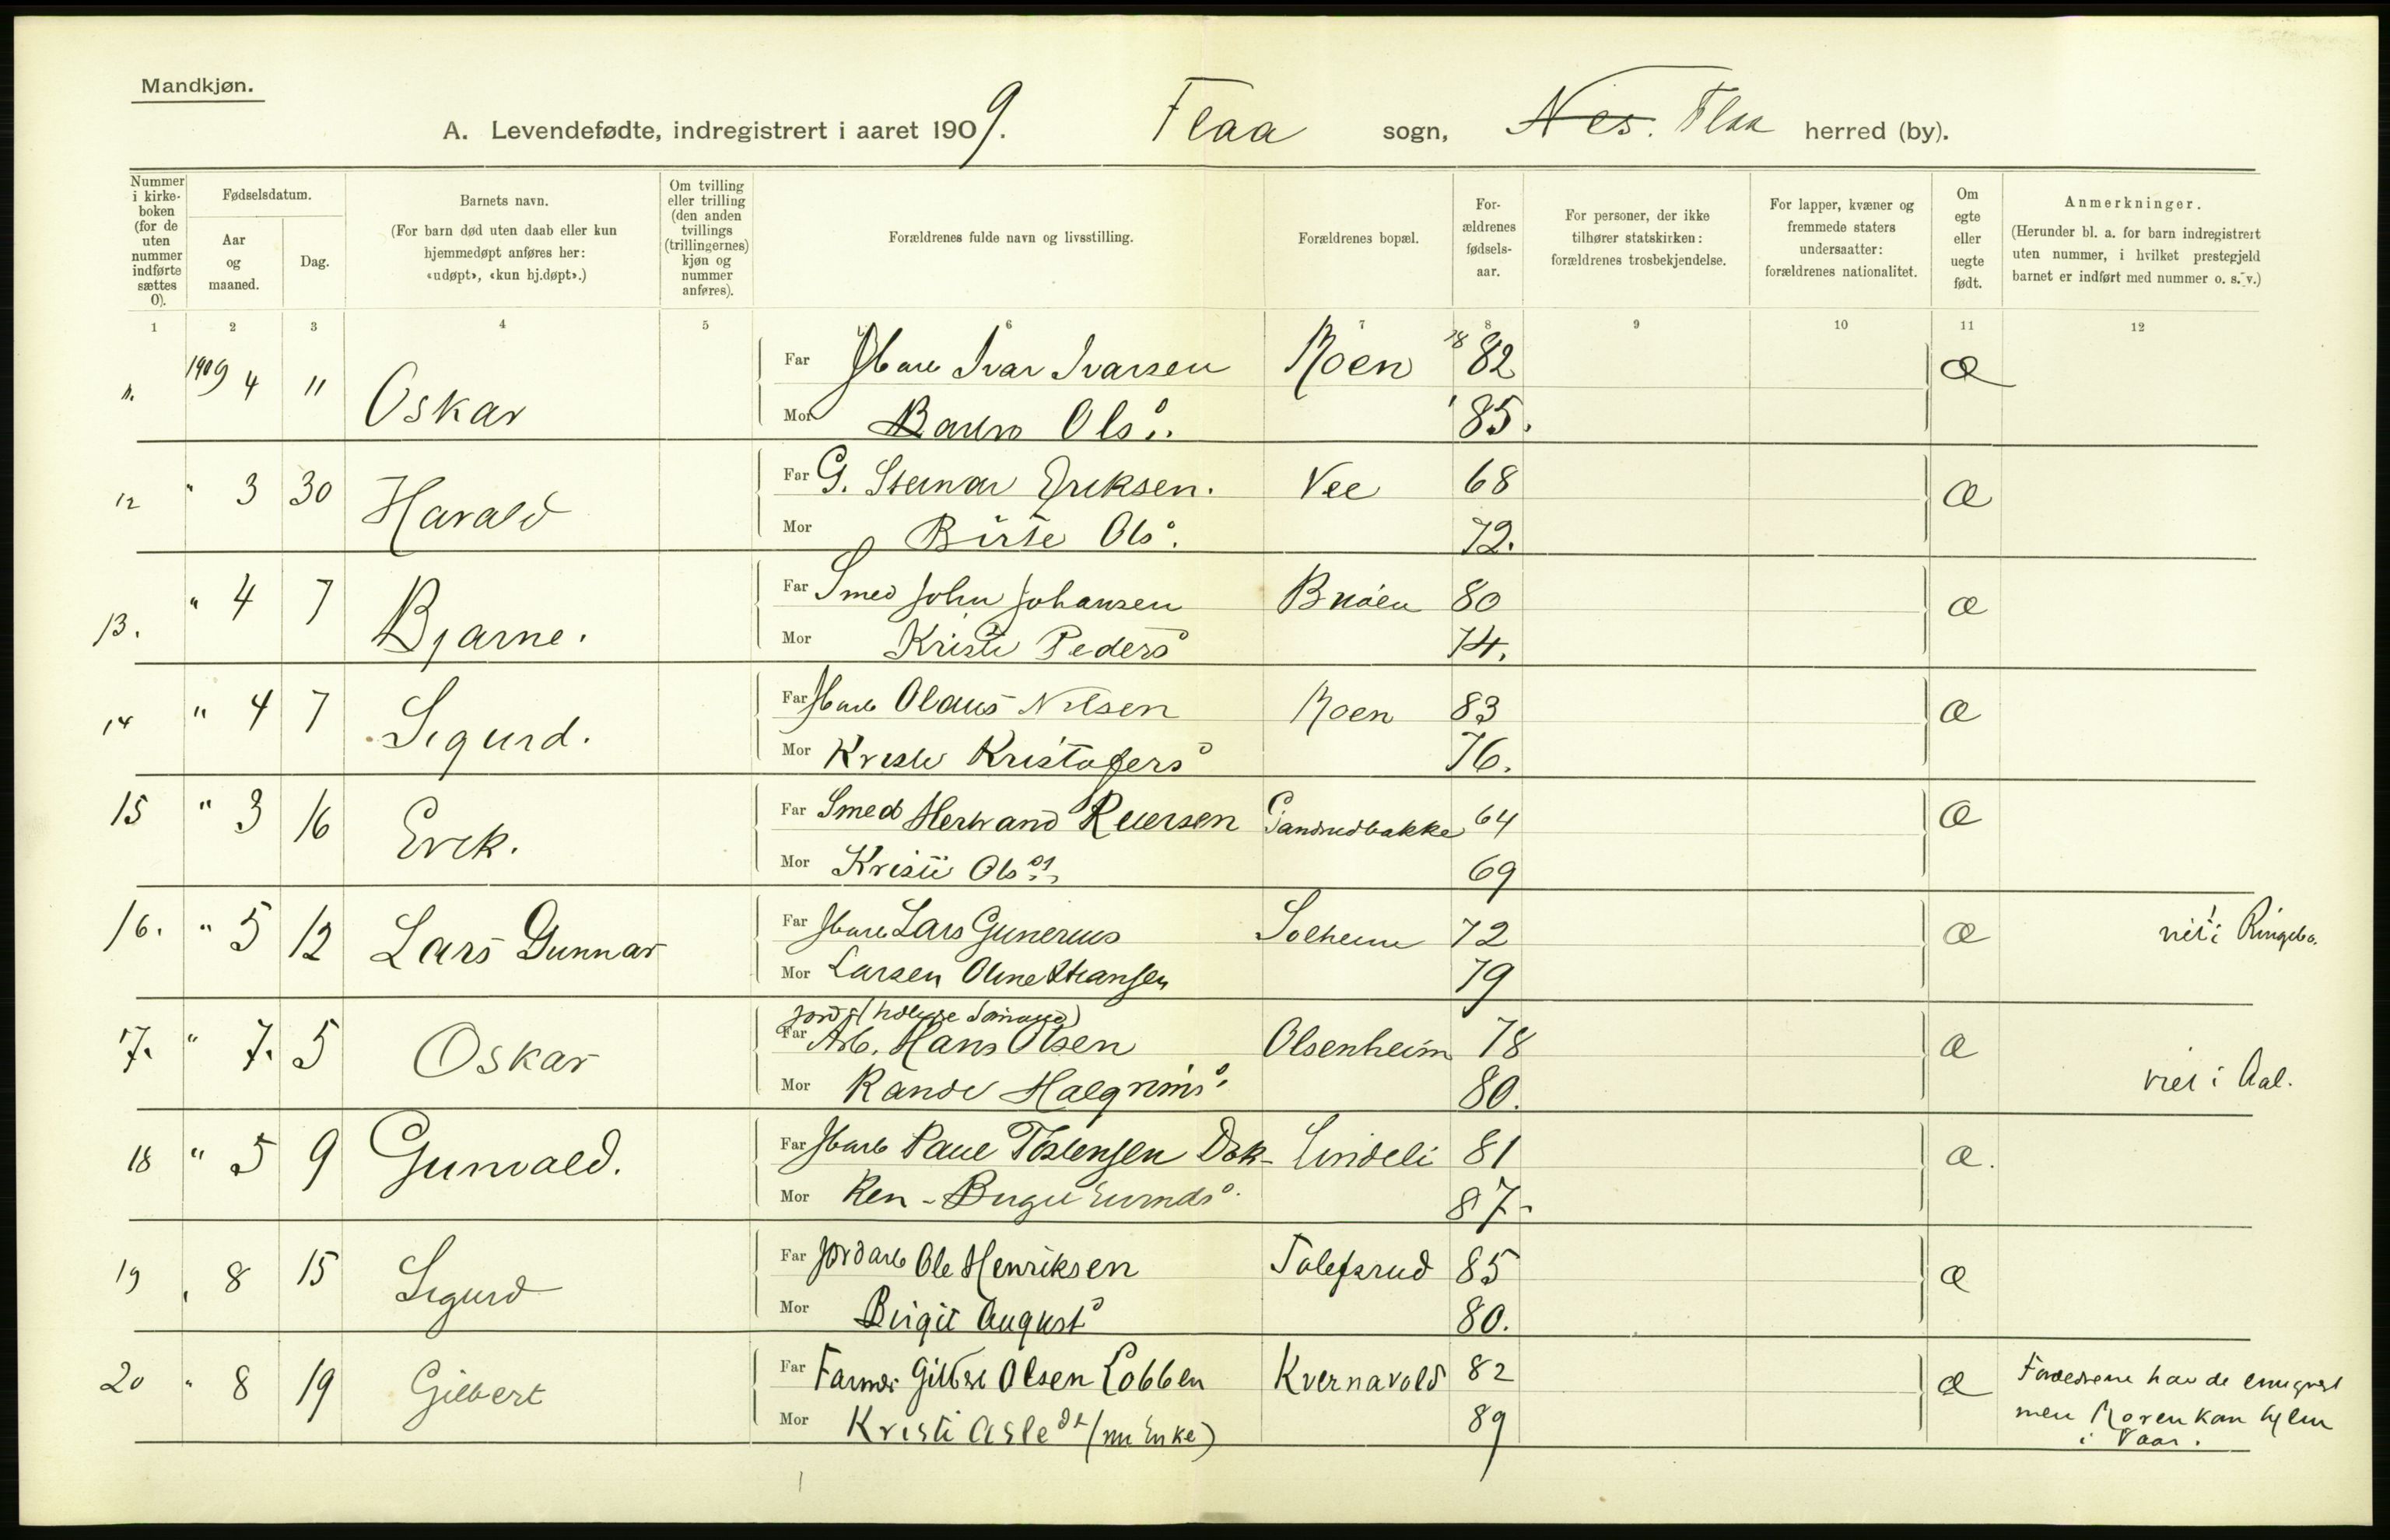 Mandkjøn.
A. Levendefødte, indregistrert i aaret 1909. Flaa sogn, Nes. Flaa herred (by).
Nummer i kirke-boken (for de uten nummer indførte sættes 0).
Fødselsdatum.
Aar og maaned.
Dag.
Barnets navn.
(For barn død uten daab eller kun hjemmedøpt anføres her: «udøpt», «kun hj.døpt».)
Om tvilling eller trilling (den anden tvillings (trillingernes) kjøn og nummer anføres).
Forældrenes fulde navn og livsstilling.
Forældrenes bopæl.
For-ældrenes fødsels-aar.
For personer, der ikke tilhører statskirken: forældrenes trosbekjendelse.
For lapper, kvæner og fremmede staters undersaatter: forældrenes nationalitet.
Om egte eller uegte født.
Anmerkninger.
(Herunder bl. a. for barn indregistrert uten nummer, i hvilket prestegjeld barnet er indført med nummer o. s. v.)
1 2 3 4 5 6 7 8 9 10 11 12
11. 1909 4 " Oskar Far Ivar Ivarsen Roen 18 82 Æ
Mor Ols. 85.
12 " 3 30 Harald Far G. Steinar Eriksen. Vee 68 Æ
Mor Birte Ols. 72.
13. " 4 7 Bjarne. Far Smed John Johansen Bråen 80 Æ
Mor Kristi Peders 74.
14 " 4 7 Sigurd. Far Olaus Nilsen Roen 83 Æ
Mor Kristi Kristofers 76.
15 " 3 16 Erik. Far Smed Herbrand Reiersen Gandrudbakke 64 Æ
Mor Kristi Ols 69
16. " 5 12 Lars Gunnar Far Lars Gunerius Solheim 72 Æ viet i Ringebo.
Mor Larsen Oline Hansen 79
17. " 7. 5 Oskar Far Arb. Hans Olsen Olsenheim 78 Æ
Mor Halgrims 80. viet i Aal.
18 " 5 9 Gunvald. Far Paul Tostensen Dok- Lindeli 81 Æ.
Mor ken - 87-
19 " 8 15 Sigurd Far Jordarb Ole Henriksen Tolefsrud 85 Æ
Mor Birgit August 80.
20 " 8 19 Gilbert Far Farmer Gilbert Olsen Lobben Kvernavold 82 Æ Forældrene havde emigrert
Mor Kristi Asle dt (nu Enke) 89 men Moren kom hjem
i Vaar.